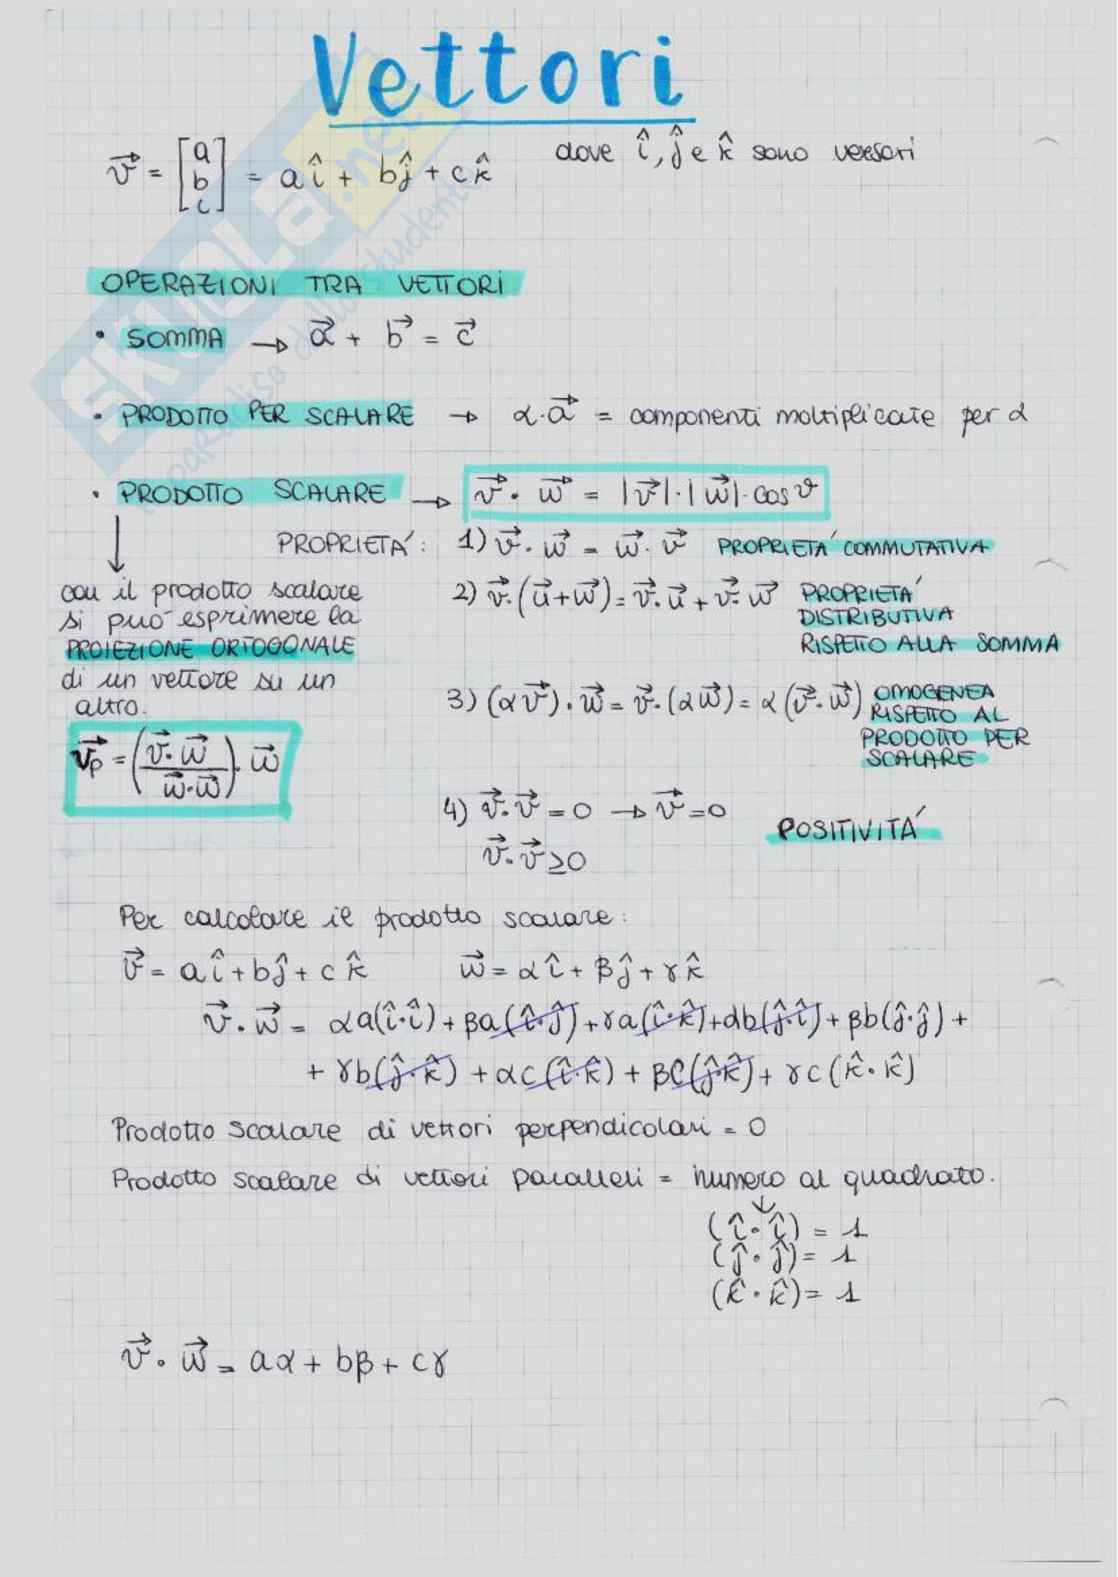 Vettori
v⃗ = [a b c] = a î + b ĵ + c k̂ dove î, ĵ e k̂ sono versori
OPERAZIONI TRA VETTORI
• SOMMA → a⃗ + b⃗ = c⃗
• PRODOTTO PER SCALARE → α·a⃗ = componenti moltiplicate per α
• PRODOTTO SCALARE → v⃗ · w⃗ = |v⃗|·|w⃗|·cos ϑ
PROPRIETÁ: 1) v⃗ · w⃗ = w⃗ · v⃗ PROPRIETÁ COMMUTATIVA
2) v⃗·(u⃗+w⃗) = v⃗·u⃗ + v⃗·w⃗ PROPRIETÁ
DISTRIBUTIVA
RISPETTO ALLA SOMMA
3) (αv⃗)·w⃗ = v⃗·(αw⃗) = α(v⃗·w⃗) OMOGENEA
RISPETTO AL
PRODOTTO PER
SCALARE
4) v⃗·v⃗ = 0 → v⃗ = 0
v⃗·v⃗ ≥ 0
POSITIVITÁ
con il prodotto scalare
si puó esprimere la
PROIEZIONE ORTOGONALE
di un vettore su un
altro.
v⃗p = (v⃗·w⃗ / w⃗·w⃗)·w⃗
Per calcolare il prodotto scalare:
v⃗ = a î + b ĵ + c k̂ w⃗ = α î + β ĵ + γ k̂
v⃗ · w⃗ = αa(î·î) + βa(î·ĵ) + γa(î·k̂) + αb(ĵ·î) + βb(ĵ·ĵ) +
+ γb(ĵ·k̂) + αc(î·k̂) + βc(ĵ·k̂) + γc(k̂·k̂)
Prodotto scalare di vettori perpendicolari = 0
Prodotto scalare di vettori paralleli = numero al quadrato.
↓
(î·î) = 1
(ĵ·ĵ) = 1
(k̂·k̂) = 1
v⃗ · w⃗ = aα + bβ + cγ
SKUOLA.net